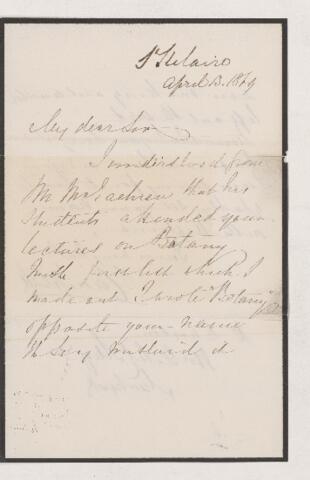 St Hilaire
April 13. 1869
My dear Sir
I understood from
Mr McEachren that his
students attended your
lectures on Botany
In the first list which I
made out I wrote "Botany"
opposite your name
The Secy mislaid it